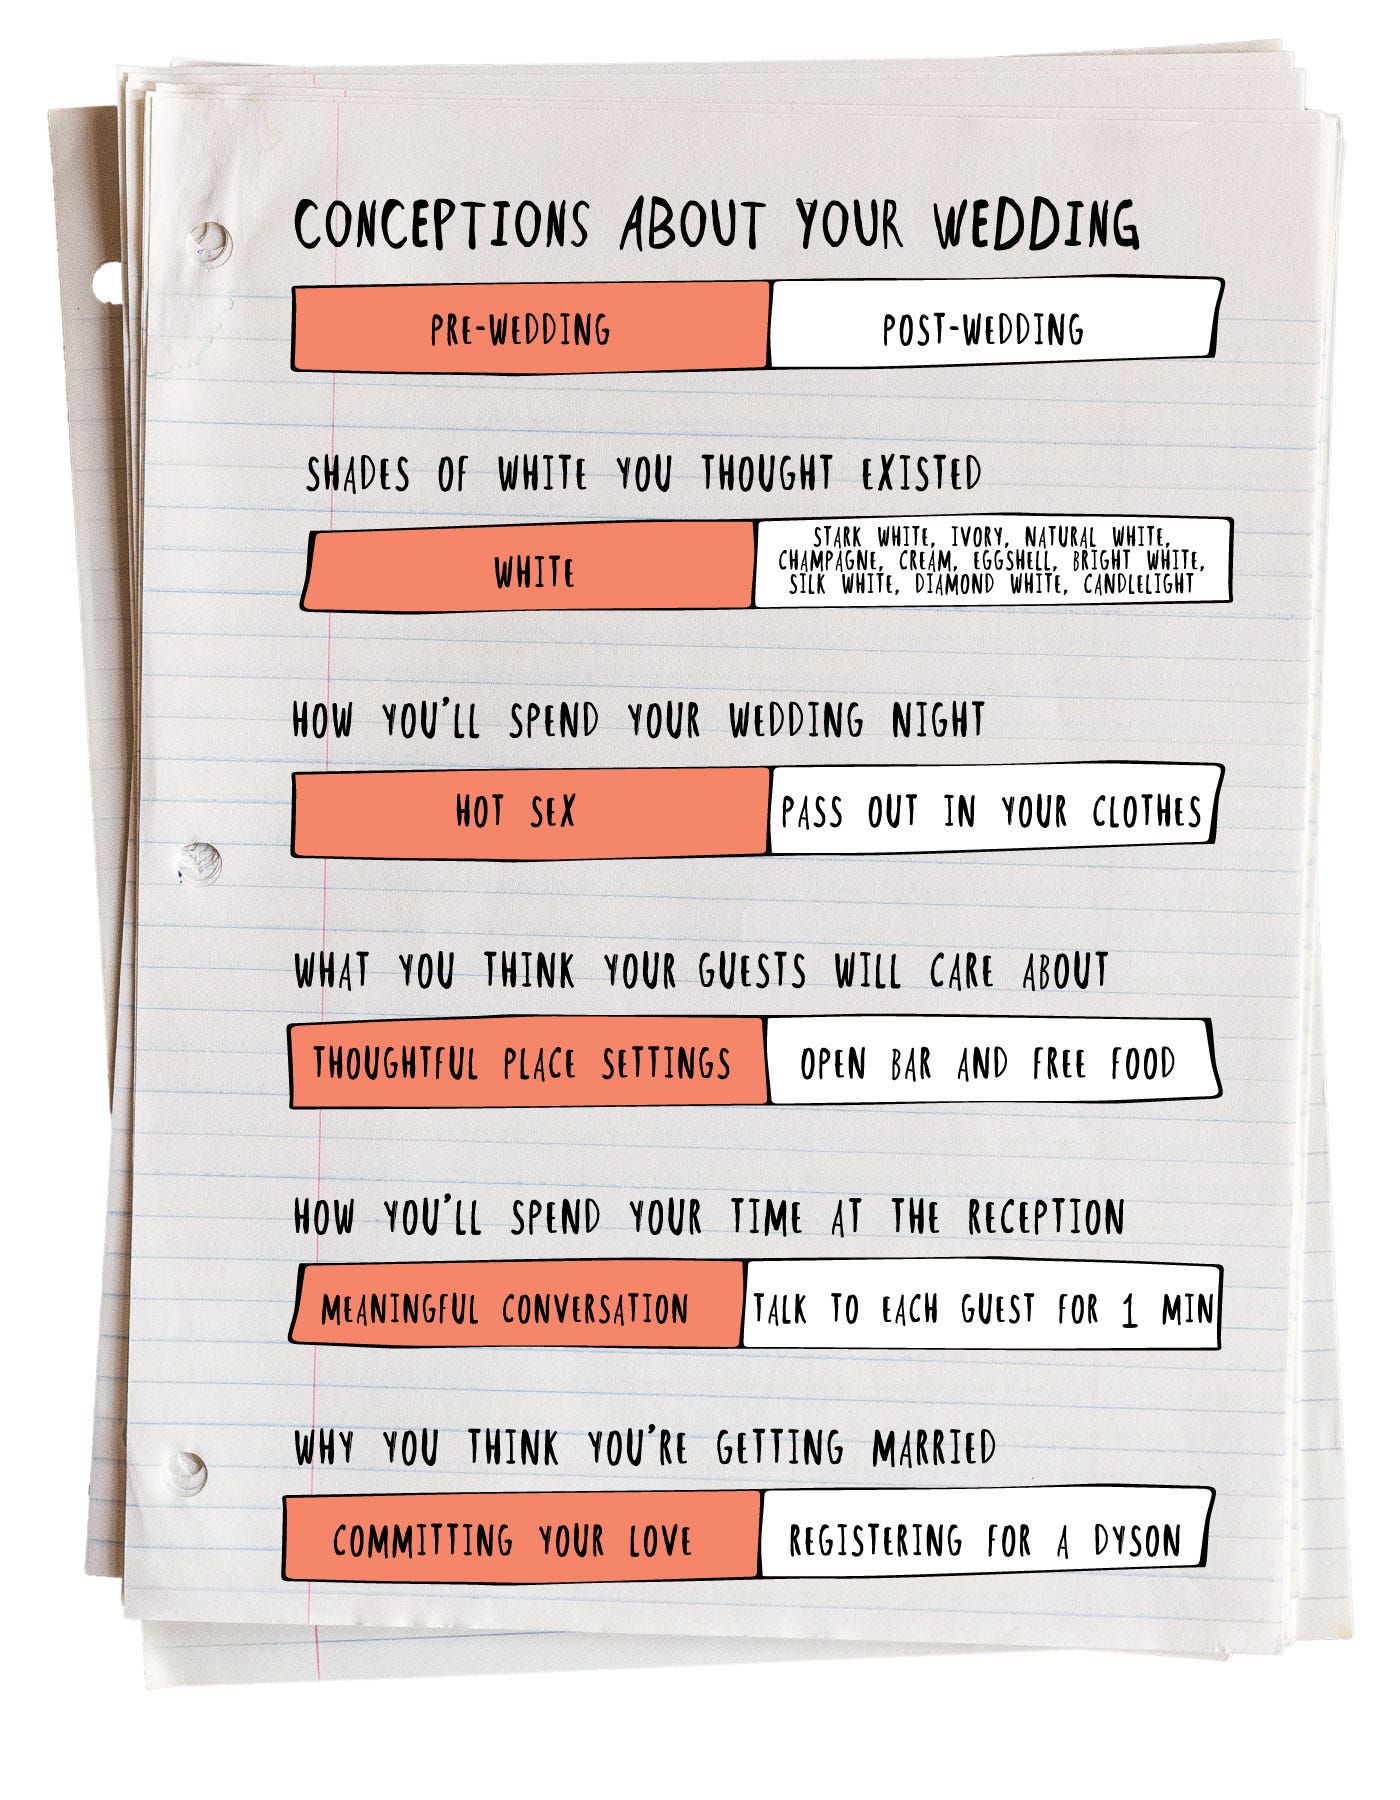 CONCEPTIONS ABOUT YOUR WEDDING
PRE-WEDDING
POST-WEDDING
SHADES OF WHITE YOU THOUGHT EXISTED
WHITE
STARK WHITE, IVORY, NATURAL WHITE,
CHAMPAGNE, CREAM, EGGSHELL, BRIGHT WHITE,
SILK WHITE, DIAMOND WHITE, CANDLELIGHT
HOW YOU'LL SPEND YOUR WEDDING NIGHT
HOT SEX
PASS OUT IN YOUR CLOTHES
WHAT YOU THINK YOUR GUESTS WILL CARE ABOUT
THOUGHTFUL PLACE SETTINGS
OPEN BAR AND FREE FOOD
HOW YOU'LL SPEND YOUR TIME AT THE RECEPTION
MEANINGFUL CONVERSATION
TALK TO EACH GUEST FOR 1 MIN
WHY YOU THINK YOU'RE GETTING MARRIED
COMMITTING YOUR LOVE
REGISTERING FOR A DYSON